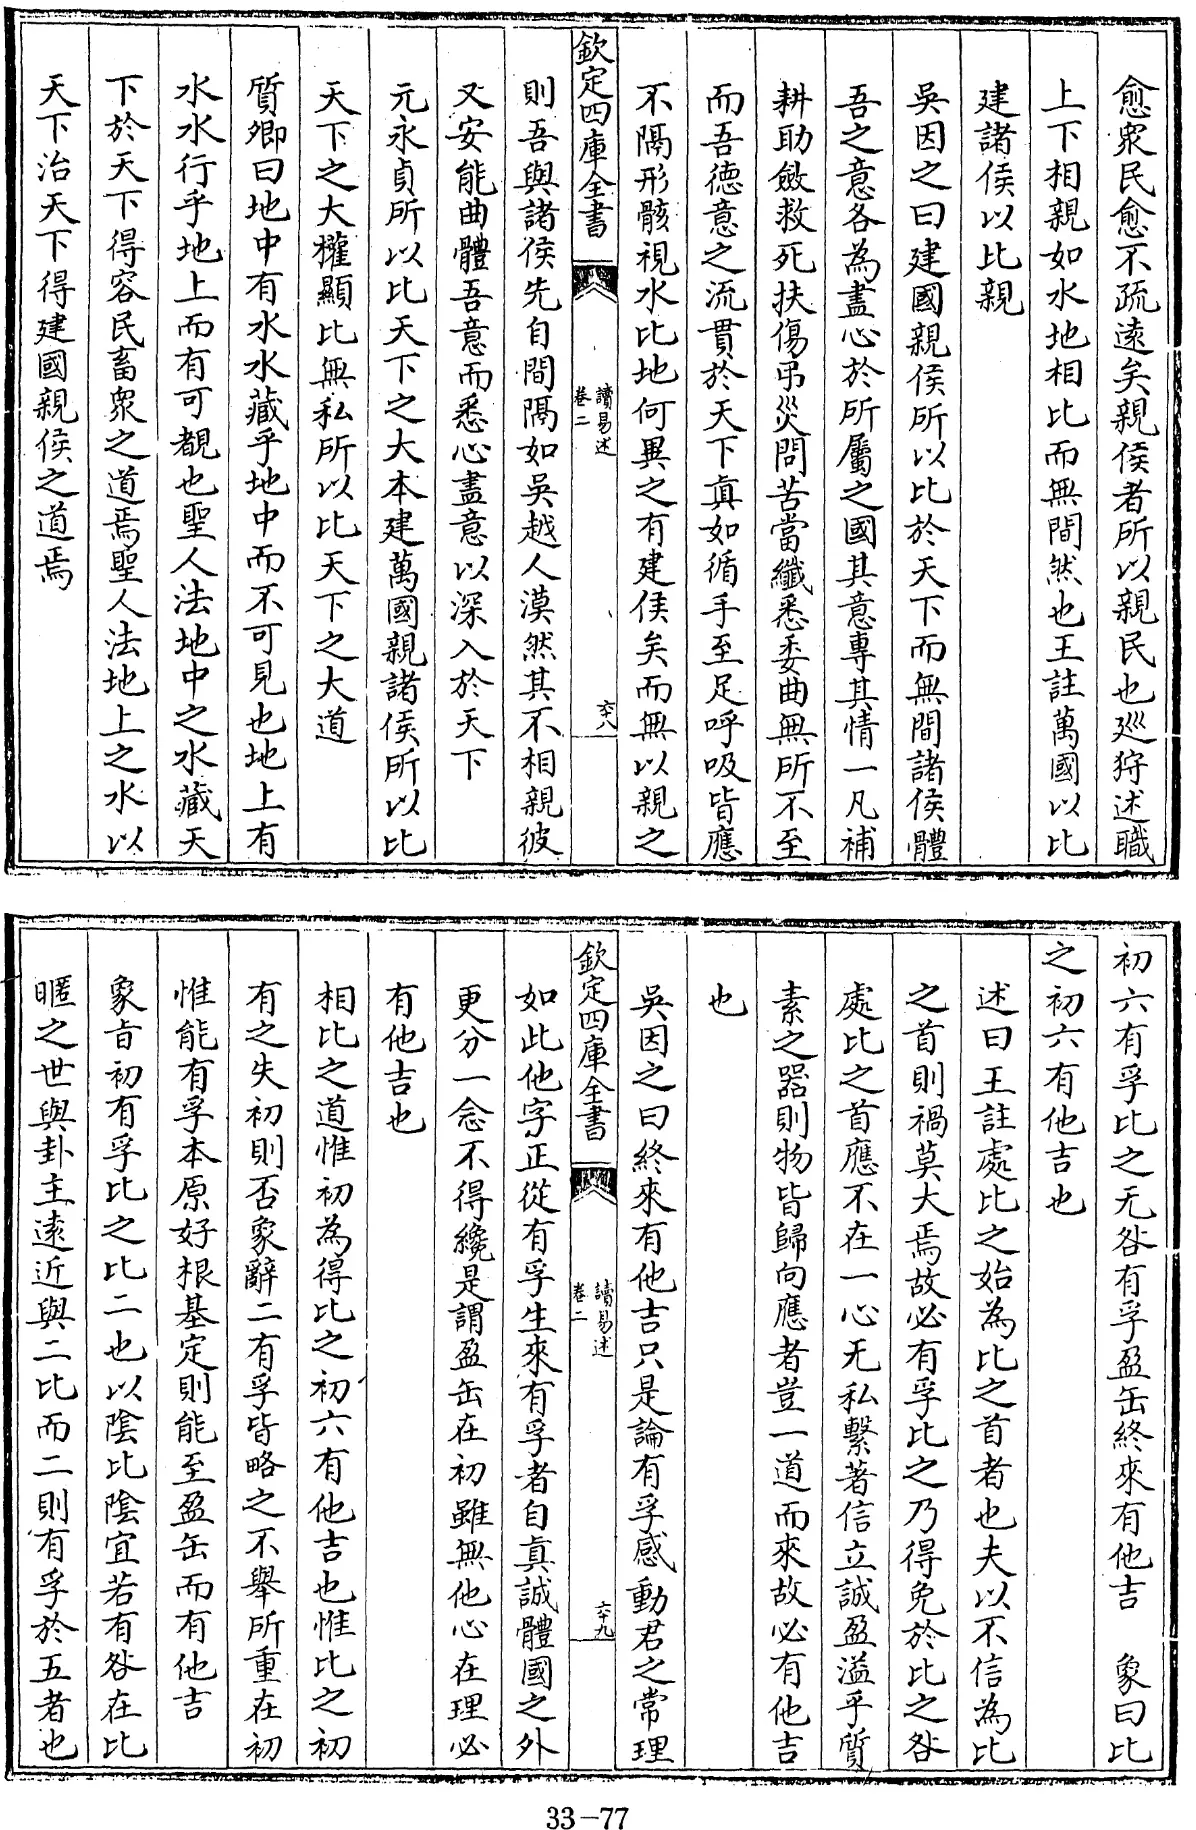 愈衆民愈不疏逺矣親侯者所以親民也廵狩述職
上下相親如水地相比而無間然也王註萬國以比
建諸侯以比親
吳因之曰建國親侯所以比於天下而無間諸侯體
吾之意各為盡心於所屬之國其意專其情一凡補
耕助斂救死扶傷弔災問苦當纖悉委曲無所不至
而吾徳意之流貫於天下真如循手至足呼吸皆應
不隔形骸視水比地何異之有建侯矣而無以親之
欽定四庫全書
讀易述
卷二
六十八
則吾與諸侯先自間隔如吳越人漠然其不相親彼
又安能曲體吾意而悉心盡意以深入於天下
元永貞所以比天下之大本建萬國親諸侯所以比
天下之大權顯比無私所以比天下之大道
質卿曰地中有水水藏乎地中而不可見也地上有
水水行乎地上而有可覩也聖人法地中之水藏天
下於天下得容民畜衆之道焉聖人法地上之水以
天下治天下得建國親侯之道焉
初六有孚比之无咎有孚盈缶終來有他吉 象曰比
之初六有他吉也
述曰王註處比之始為比之首者也夫以不信為比
之首則禍莫大焉故必有孚比之乃得免於比之咎
處比之首應不在一心无私繫著信立誠盈溢乎質
素之器則物皆歸向應者豈一道而來故必有他吉
也
吳因之曰終來有他吉只是論有孚感動君之常理
欽定四庫全書
讀易述
卷二
六十九
如此他字正從有孚生來有孚者自真誠體國之外
更分一念不得纔是謂盈缶在初雖無他心在理必
有他吉也
相比之道惟初為得比之初六有他吉也惟比之初
有之失初則否象辭二有孚皆略之不舉所重在初
惟能有孚本原好根基定則能至盈缶而有他吉
象㫖初有孚比之比二也以陰比陰宜若有咎在比
暱之世與卦主逺近與二比而二則有孚於五者也
33-77